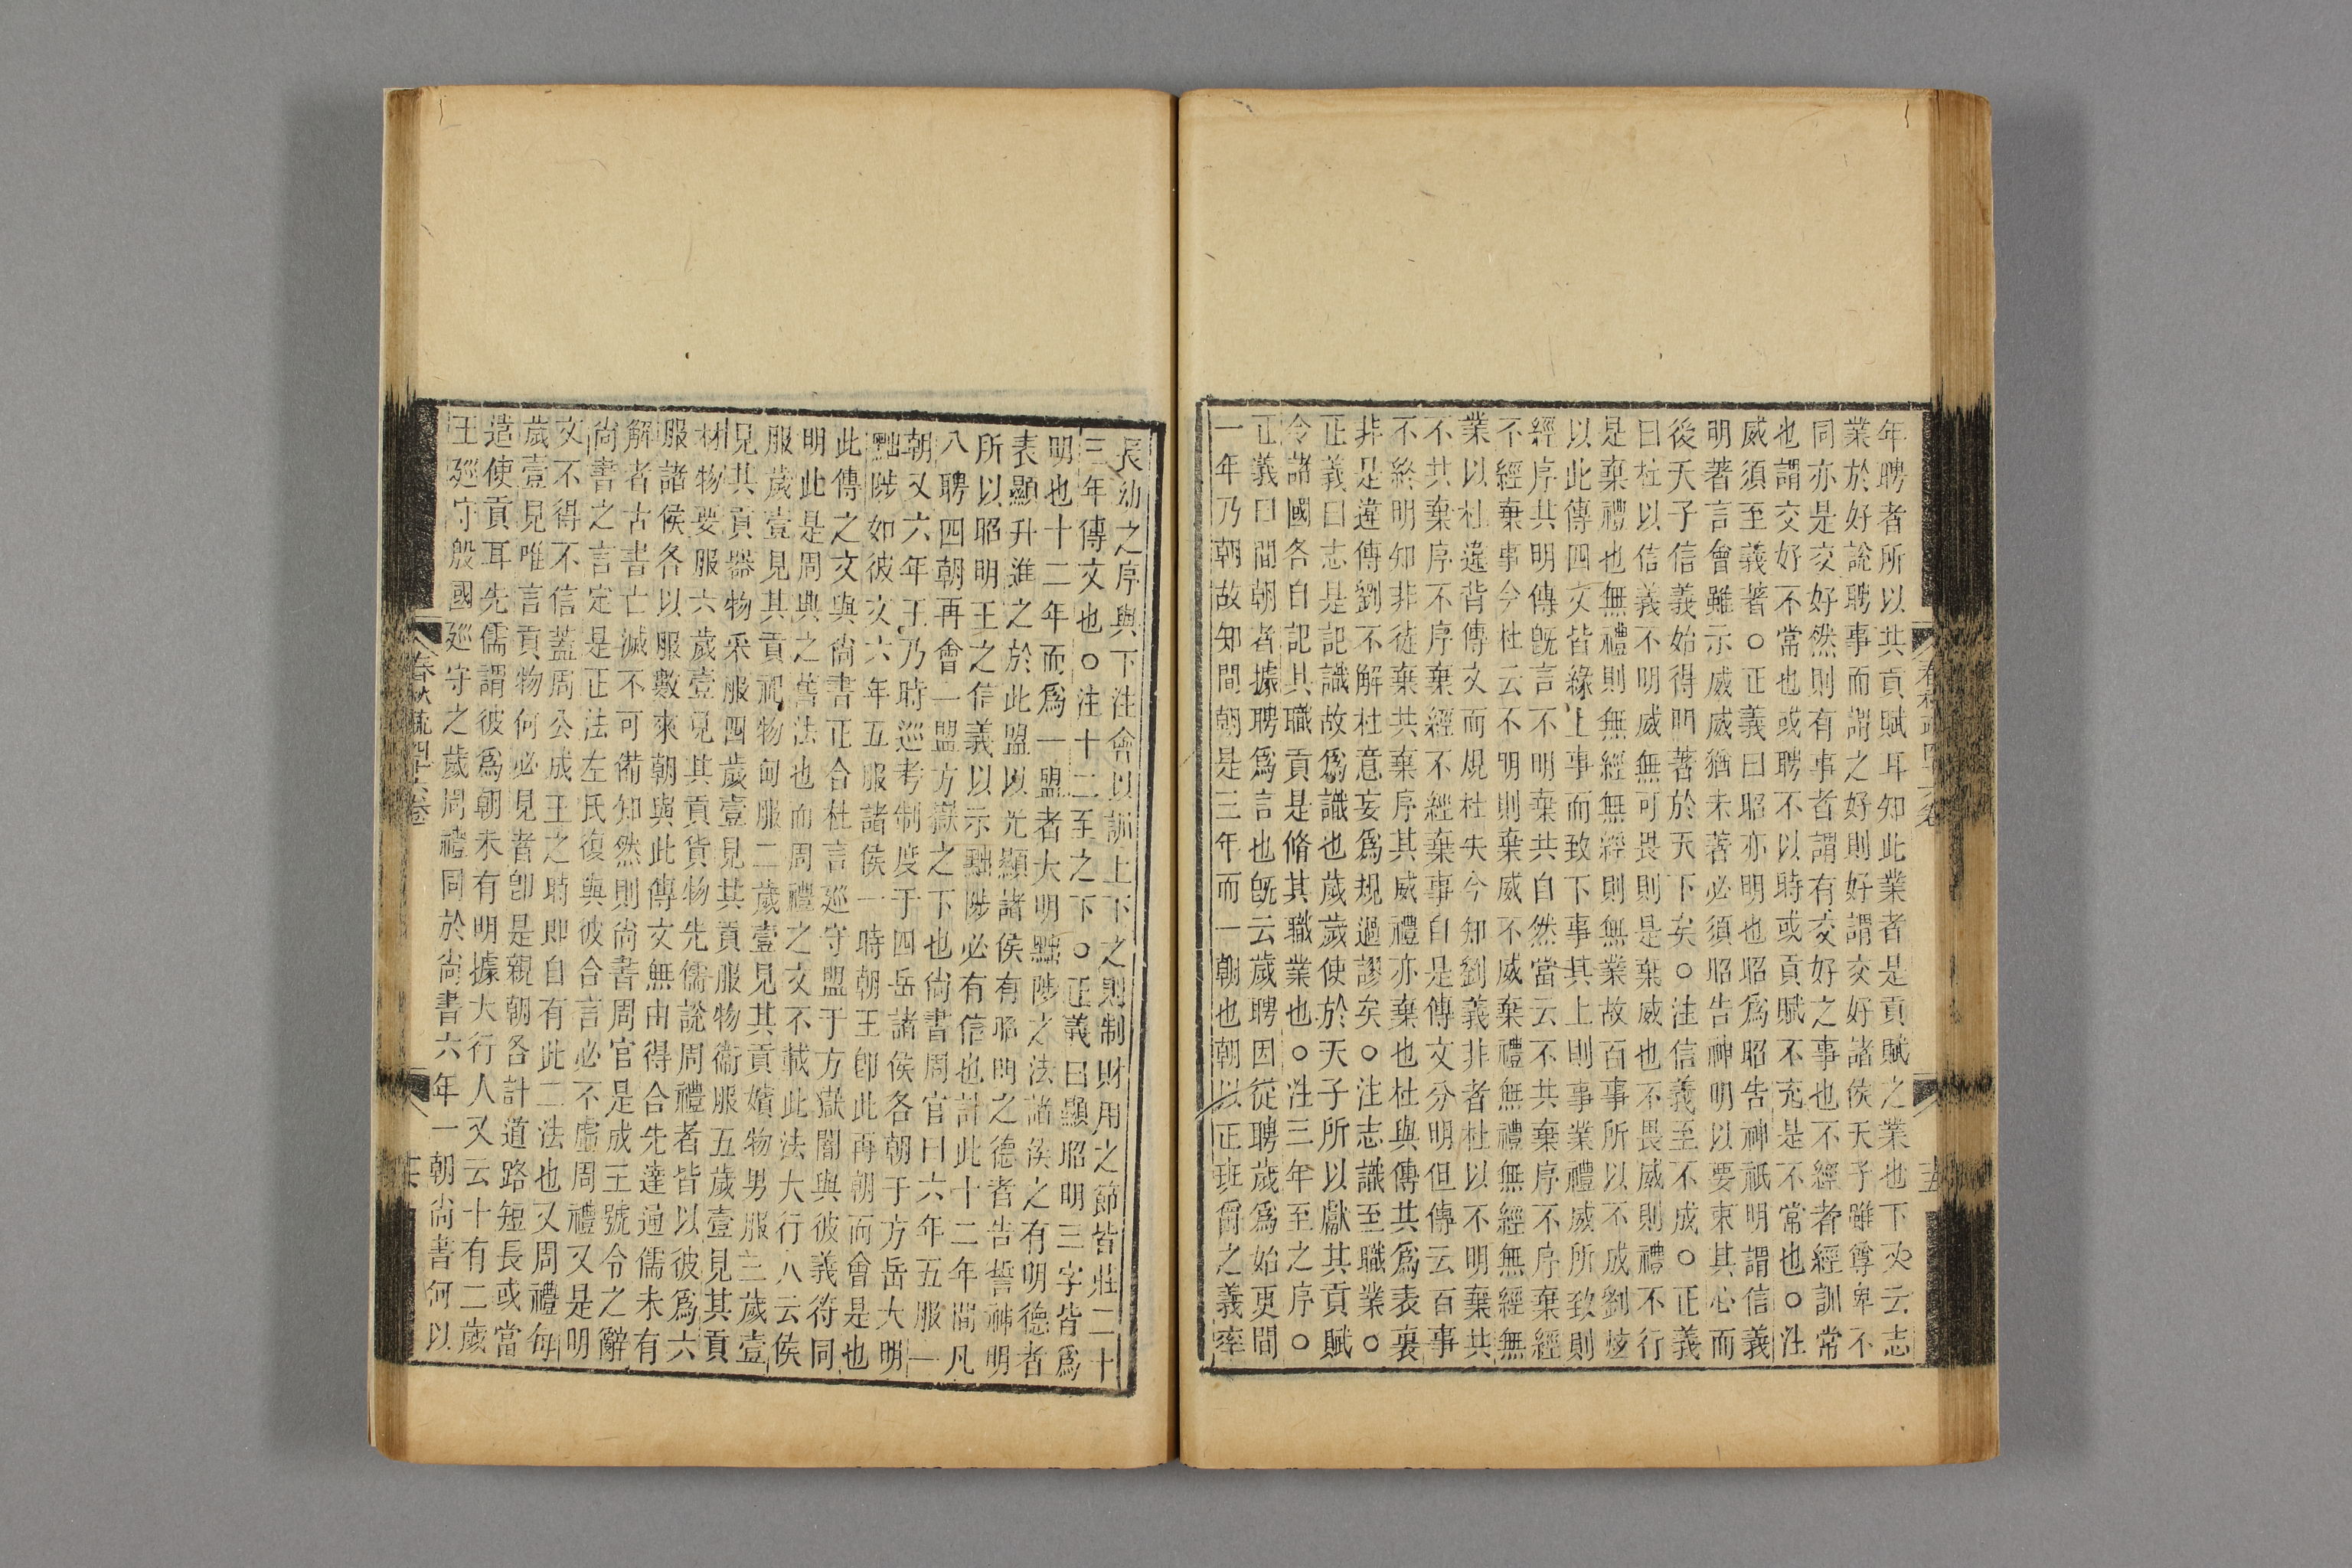 年聘者所以共貢賦耳知此業者是貢賦之業也下文云志
業於好說聘事而謂之好則好謂交好諸侯天子雖尊卑不
同亦是交好然則有事者謂有交好之事也不經者經訓常
也謂交好不常也或聘不以時或貢賦不充是不常也○注
威須至義著○正義曰昭亦明也昭爲昭告神祇明謂信義
明著言會雖示威威猶未著必須昭告神明以要束其心而
後天子信義始得門著於天下矣○注信義至不成○正義
曰杜以信義不明威無可畏則是棄威也不畏威則禮不行
是棄禮也無禮則無經無經則無業故百事所以不成劉炫
以此傳四文皆緣上事而致下事其上則事業禮威所致則
經序其明傳旣言不明棄共自然當云不共棄序不序棄經
不經棄事今杜云不明則棄威不威棄禮無禮無經無經無
業以杜違背傳文而規杜失今知劉義非者杜以不明棄共
不共棄序不序棄經不經棄事自是傳文分明但傳云百事
不終明知非徒棄共棄序其威禮亦棄也杜與傳共爲表裏
非是違傳劉不解杜意妄爲規過謬矣○注志識至職業○
正義曰志是記識故爲識也歲歲使於天子所以獻其貢賦
令諸國各自記其職貢是脩其職業也○注三年至之序○
正義曰間朝者據聘爲言也旣云歲聘因從聘歲爲始更間
一年乃朝故知間朝是三年而一朝也朝以正班爵之義率
長幼之序與下注會以訓上下之則制財用之節皆莊二十
三年傳文也○注十二至之下○正義曰顯昭明三字皆爲
明也十二年而爲一盟者大明黜陟之法諸侯之有明德者
表顯升進之於此盟以光顯諸侯有昭明之德者告誓神明
所以昭明王之信義以示黜陟必有信也計此十二年間凡
八聘四朝再會一盟方嶽之下也尙書周官曰六年五服一
朝又六年王乃時巡考制度于四岳諸侯各朝于方岳大明
黜陟如彼文六年五服諸侯一時朝王卽此再朝而會是也
此傳之文與尙書正合杜言廵守盟于方嶽闇與彼義符同
明此是周典之舊法也而周禮之文不載此法大行人云侯
服歲壹見其貢祀物甸服二歲壹見其貢嬪物男服三歲壹
見其貢器物采服四歲壹見其貢服物衞服五歲壹見其貢
材物要服六歲壹見其貢貨物先儒說周禮者皆以彼爲六
服諸侯各以服數來朝與此傳文無由得合先達通儒未有
解者古書亡滅不可備知然則尙書周官是成王號令之辭
尙書之言定是正法左氏復與彼合言必不虛周禮又是明
文不得不信蓋周公成王之時即自有此二法也又周禮每
歲壹見唯言貢物何必見者卽是親朝各計道路短長或當
遣使貢耳先儒謂彼爲朝未有明據大行人又云十有二歲
王廵守殷國廵守之歲周禮同於尙書六年一朝尙書何以
春秋疏四十六卷